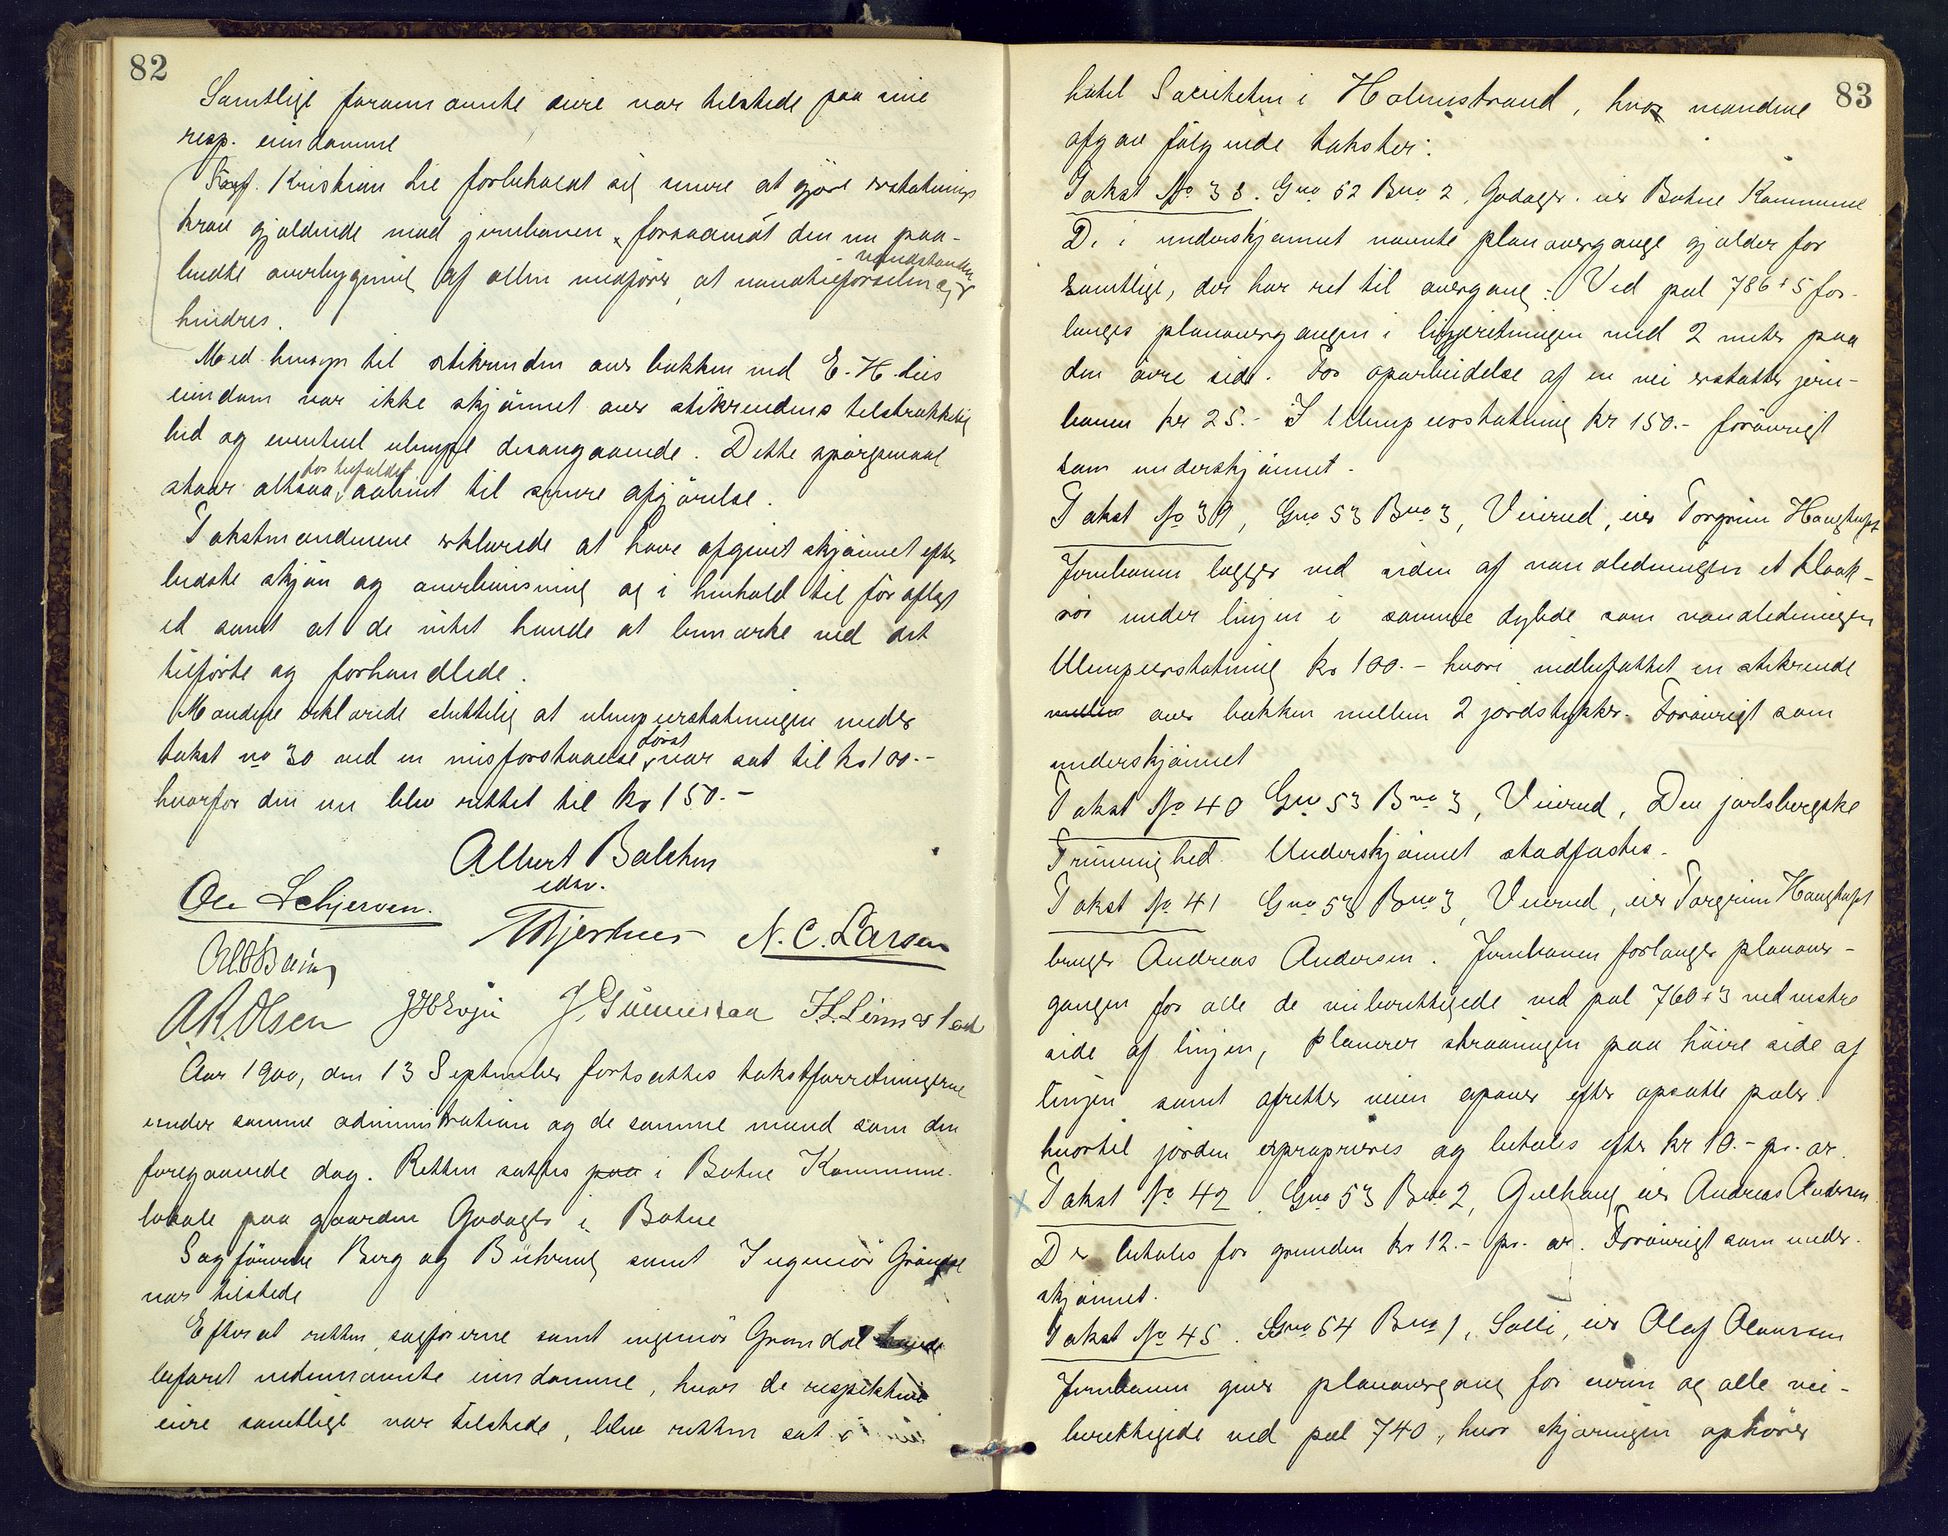 82
Samtlige forannævnte eiere var tilstede paa sine
resp. eiendomme
Sagf. Kristian Lie forbeholdt sig senere at gjøre erstatnings
krav gjældende mod jernbanen, forsaavidt den nu paa-
budte overbygning af elven medfører, at vandtilførselen og vandstanden
hindres.
Med hensyn til stikrenden over bækken ved E. H. Lies
eiendom var ikke skjønnet over stikrendens tilstrækkelig
hed og eventuel ulempe desangaaende. Dette spørgsmaal
staar altsaa forbeholdt aabent til senere afgjørelse.
Takstmændene erklærede at have afgivet skjønnet efter
bedste skjøn og overbevisning og i henhold til før aflagt
ed samt at de intet havde at bemærke ved det
tilførte og forhandlede.
Mændene erklærede sluttelig at ulempeerstatningen under
takst no 30 ved en misforstaaelse først var sat til kr 100.-
hvorfor den nu blev rettet til kr 150.-
Albert Balchen
edsv.
Ole Schjerven.
N. C. Larsen
A. R. Olsen
Aar 1900, den 13 September fortsattes takstforretningerne
under samme administration og de samme mænd som den
foregaaende dag. Retten sattes paa i Botne Kommune-
lokale paa gaarden Gudager i Botne
Sagførerne Berg og samt Ingeniør Grøndal
var tilstede
Efterat retten, sagførerne samt ingeniør Grøndal havde
befaret nedennævnte eiendomme, hvor de respektive
eiere samtlige var tilstede, blev retten sat i
83
hotel Societeten i Holmestrand, hvor mændene
afgav følgende takster:
Takst No 38. Gno 52 Bno 2, Gudager. eier Botne Kommune
D. i underskjønnet nævnte planovergange gjælder for
samtlige, der har ret til overgang: Ved pæl 786+5 for-
længes planovergangen i linjeretningen med 2 meter paa
den øvre side. For oparbeidelse af en vei erstatter jern-
banen kr 25.- I ulempeerstatning kr 150.- forøvrigt
som underskjønnet.
Takst No 39, Gno 53 Bno 3, Veierud, eier Torgrim Haughuset
Jernbanen lægger ved siden af vandledningen et kloak-
rør under linjen i samme dybde som vandledningen
Ulempeerstatning kr 100.- hvori indbefattet en stikrende
mellem over bækken mellem 2 jordstykker. Forøvrigt som
underskjønnet
Takst No 40 Gno 53 Bno 3, Veierud, Den jarlsbergske
Trævarefabrik. Underskjønnet stadfæstes.
Takst No 41 Gno 53 Bno 3, Veierud, eier Torgrim Haughuset
bruger Andreas Andersen. Jernbanen forlænger planover-
gangen for alle de veiberettigede ved pæl 760+3 ved venstre
side af linjen, planerer skraaningen paa høire side af
linjen samt afretter veien ovenover efter opsatte pæler.
hvortil jorden exproprieres og betales efter kr 10.- pr. ar.
Takst No 42. Gno 53 Bno 2, Gulhaug eier Andreas Andersen
Der betales for grunden kr 12.- pr. ar. Forøvrigt som under-
skjønnet.
Takst No 45. Gno 54 Bno 1, Solli, eier Olaf Olaussen
Jernbanen giver planovergang for eieren og alle vei-
berettigede ved pæl 740, hvor skjæringen ophører